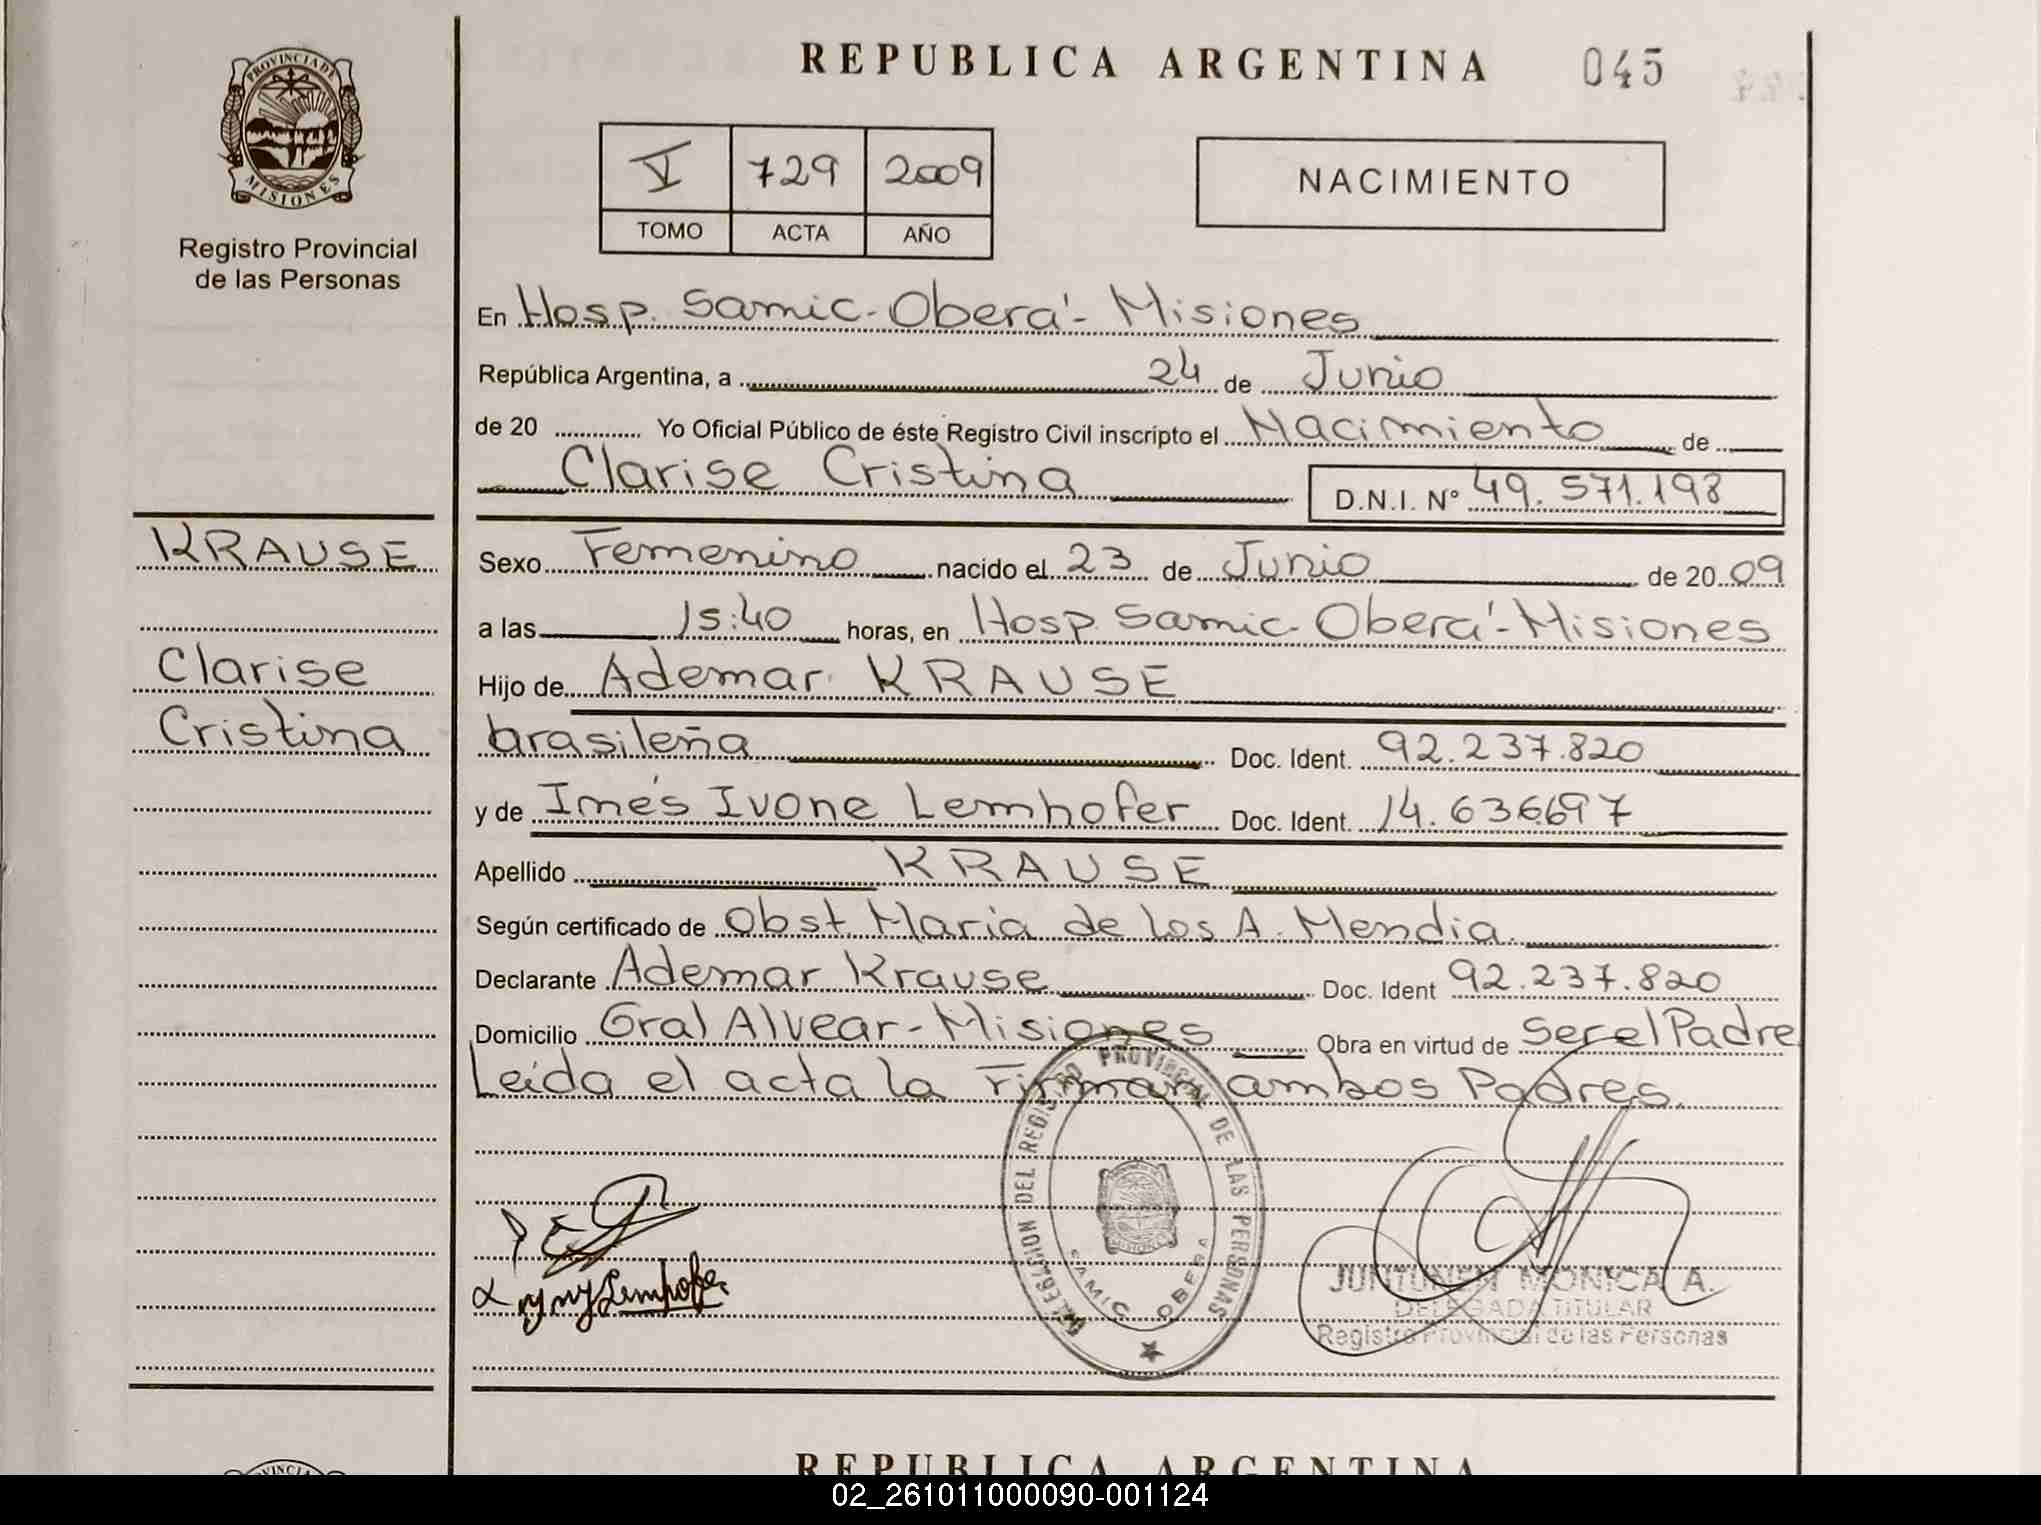 REPUBLICA ARGENTINA 045
PROVINCIA DE
MISIONES
Registro Provincial
de las Personas
V 729 2009
TOMO ACTA AÑO
NACIMIENTO
En Hosp. Samic - Oberá - Misiones
República Argentina, a 24 de Junio
de 20 ............. Yo Oficial Público de éste Registro Civil inscripto el Nacimiento de
Clarise Cristina D.N.I. N° 49.571.198
KRAUSE
Clarise
Cristina
Sexo Femenino nacido el 23 de Junio de 2009
a las 15:40 horas, en Hosp. Samic - Oberá - Misiones
Hijo de Ademar KRAUSE
brasileña Doc. Ident. 92.237.820
y de Inés Ivone Lemhofer Doc. Ident. 14.636.697
Apellido KRAUSE
Según certificado de Obst. Maria de los A. Mendia.
Declarante Ademar Krause Doc. Ident 92.237.820
Domicilio Gral Alvear - Misiones Obra en virtud de Ser el Padre
Leida el acta la Firman ambos Padres.
DELEGACION DEL REGISTRO PROVINCIAL DE LAS PERSONAS
SAMIC OBERA
MISIONES
Lemhofer
JUNTUNEN MONICA A.
DELEGADA TITULAR
Registro Provincial de las Personas
REPUBLICA ARGENTINA
02_261011000090-001124